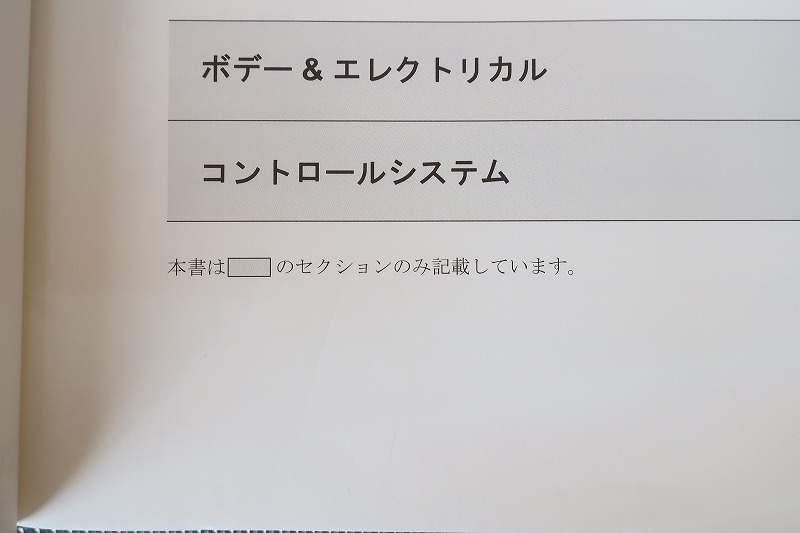 ボデー & エレクトリカル
コントロールシステム
本書は のセクションのみ記載しています。